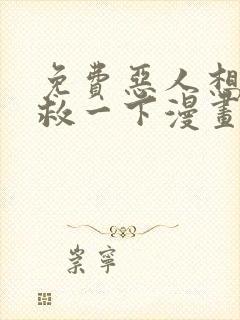 免費惡人想搶
救一下漫畫
崇寧